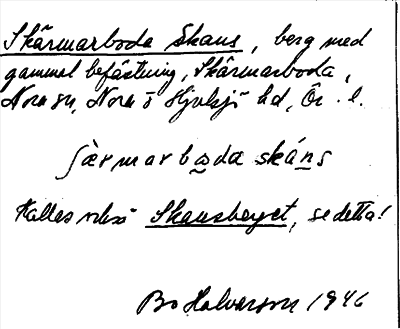 Skärmarboda Skans, berg med
gammal befästning, Skärmarboda,
Nora sn, Nora o Hjulsjö hd, Ör. l.
ʃærmarboda skáns
Kallas också Skansberget, se detta!
Bo Halvarson 1946